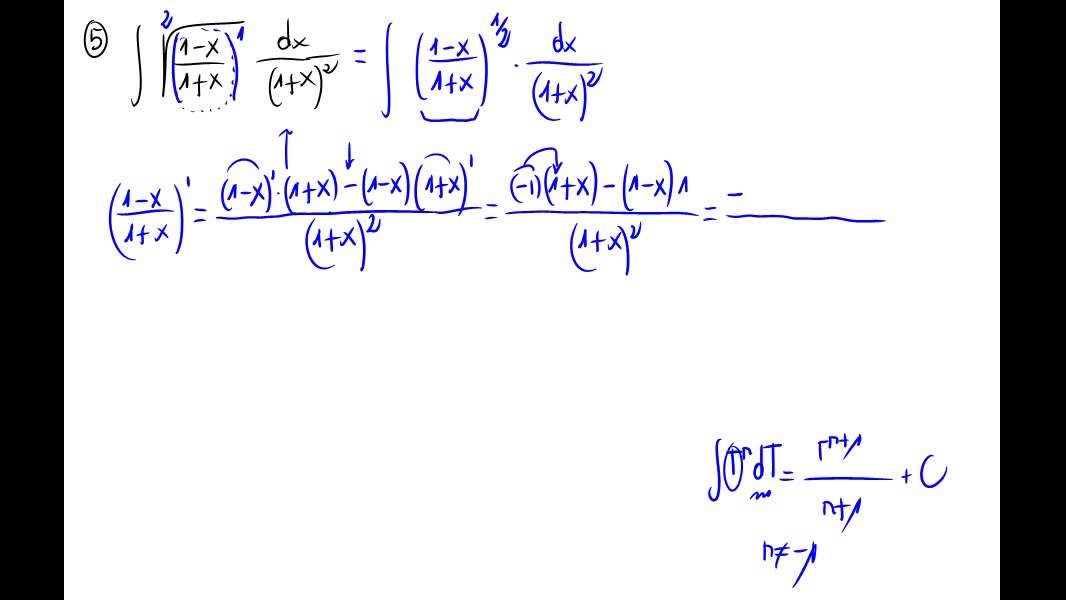 ⑤ ∫ ²√((1-x)/(1+x))¹ dx/(1+x)² = ∫ ((1-x)/(1+x))^(1/2) · dx/(1+x)²
((1-x)/(1+x))' = ((1-x)'·(1+x) - (1-x)(1+x)')/(1+x)² = ((-1)(1+x) - (1-x)1)/(1+x)² = -
∫ T^n dT = T^(n+1)/(n+1) + C
n ≠ -1